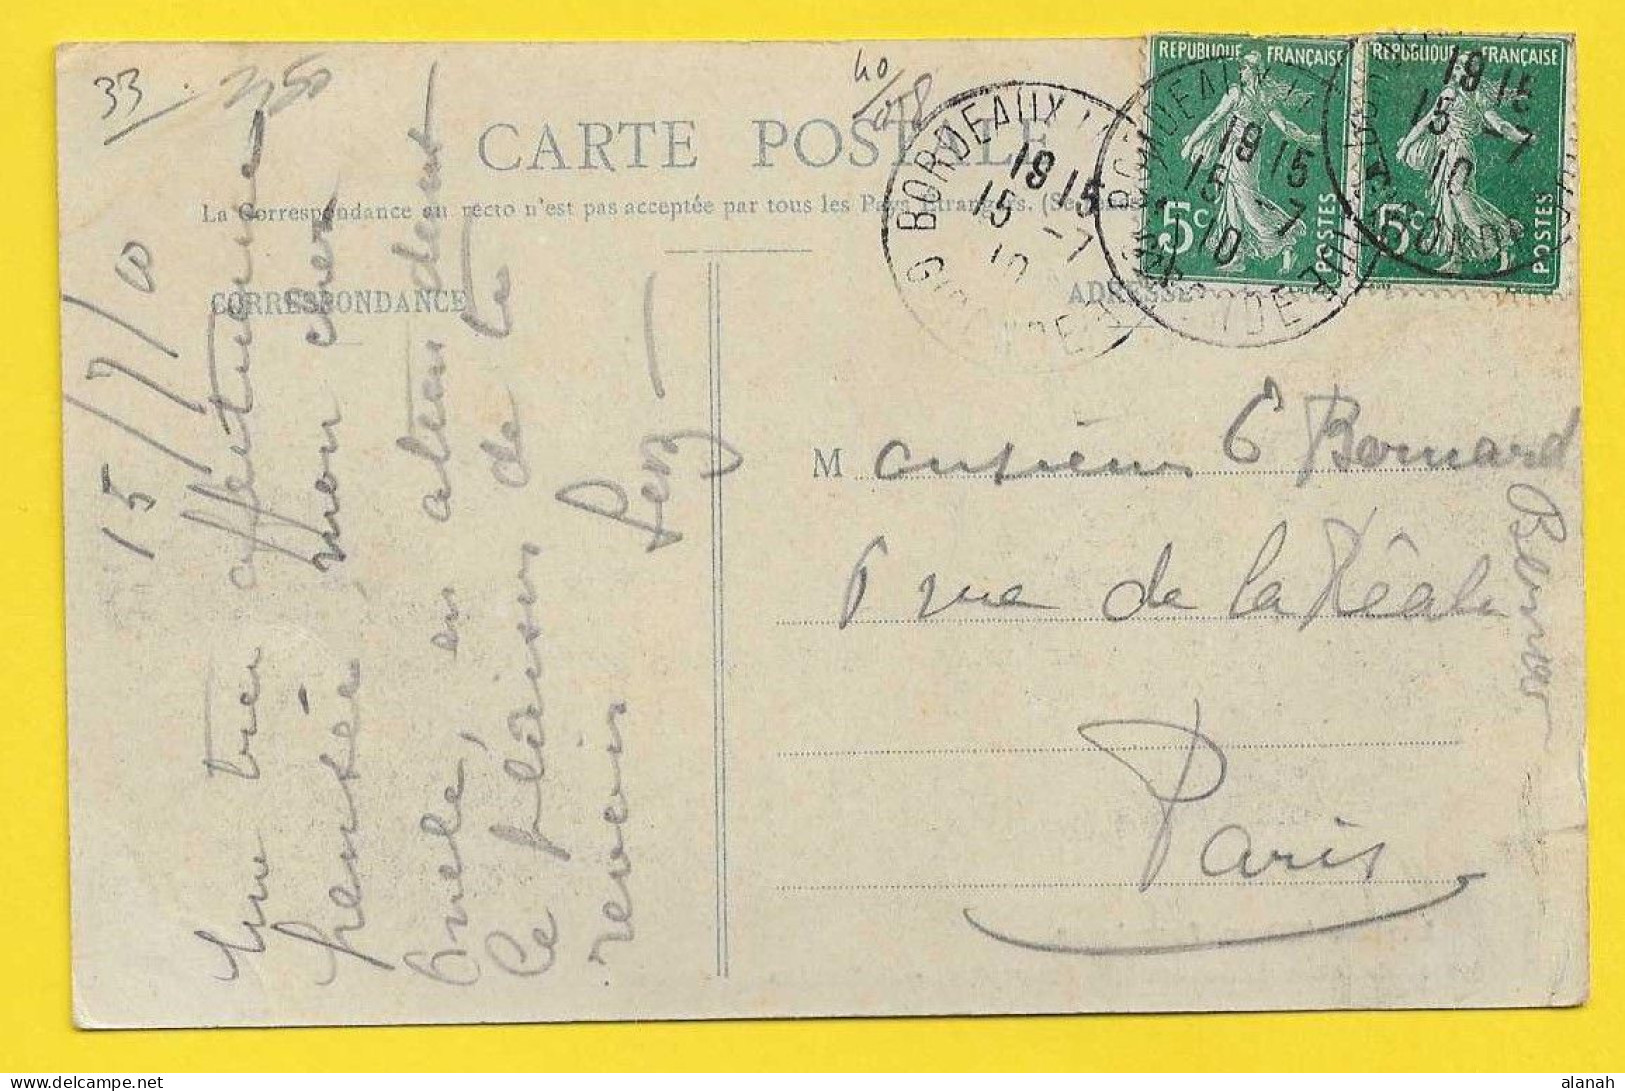 33
40
CARTE POSTALE
La Correspondance au recto n'est pas acceptée par tous les Pays Etrangers. (Se
CORRESPONDANCE
ADRESSE
REPUBLIQUE FRANÇAISE
5c POSTES
REPUBLIQUE FRANÇAISE
5c POSTES
BORDEAUX
GIRONDE
19 15
15 -7
10
BORDEAUX
GIRONDE
19 15
15 -7
10
19 15
15 -7
10
15/7/10
Une bien affectueuse
pensée, mon cher
Oncle, en attendant
le plaisir de te
revoir
Monsieur E Bernard
rue de la
Paris
alanah